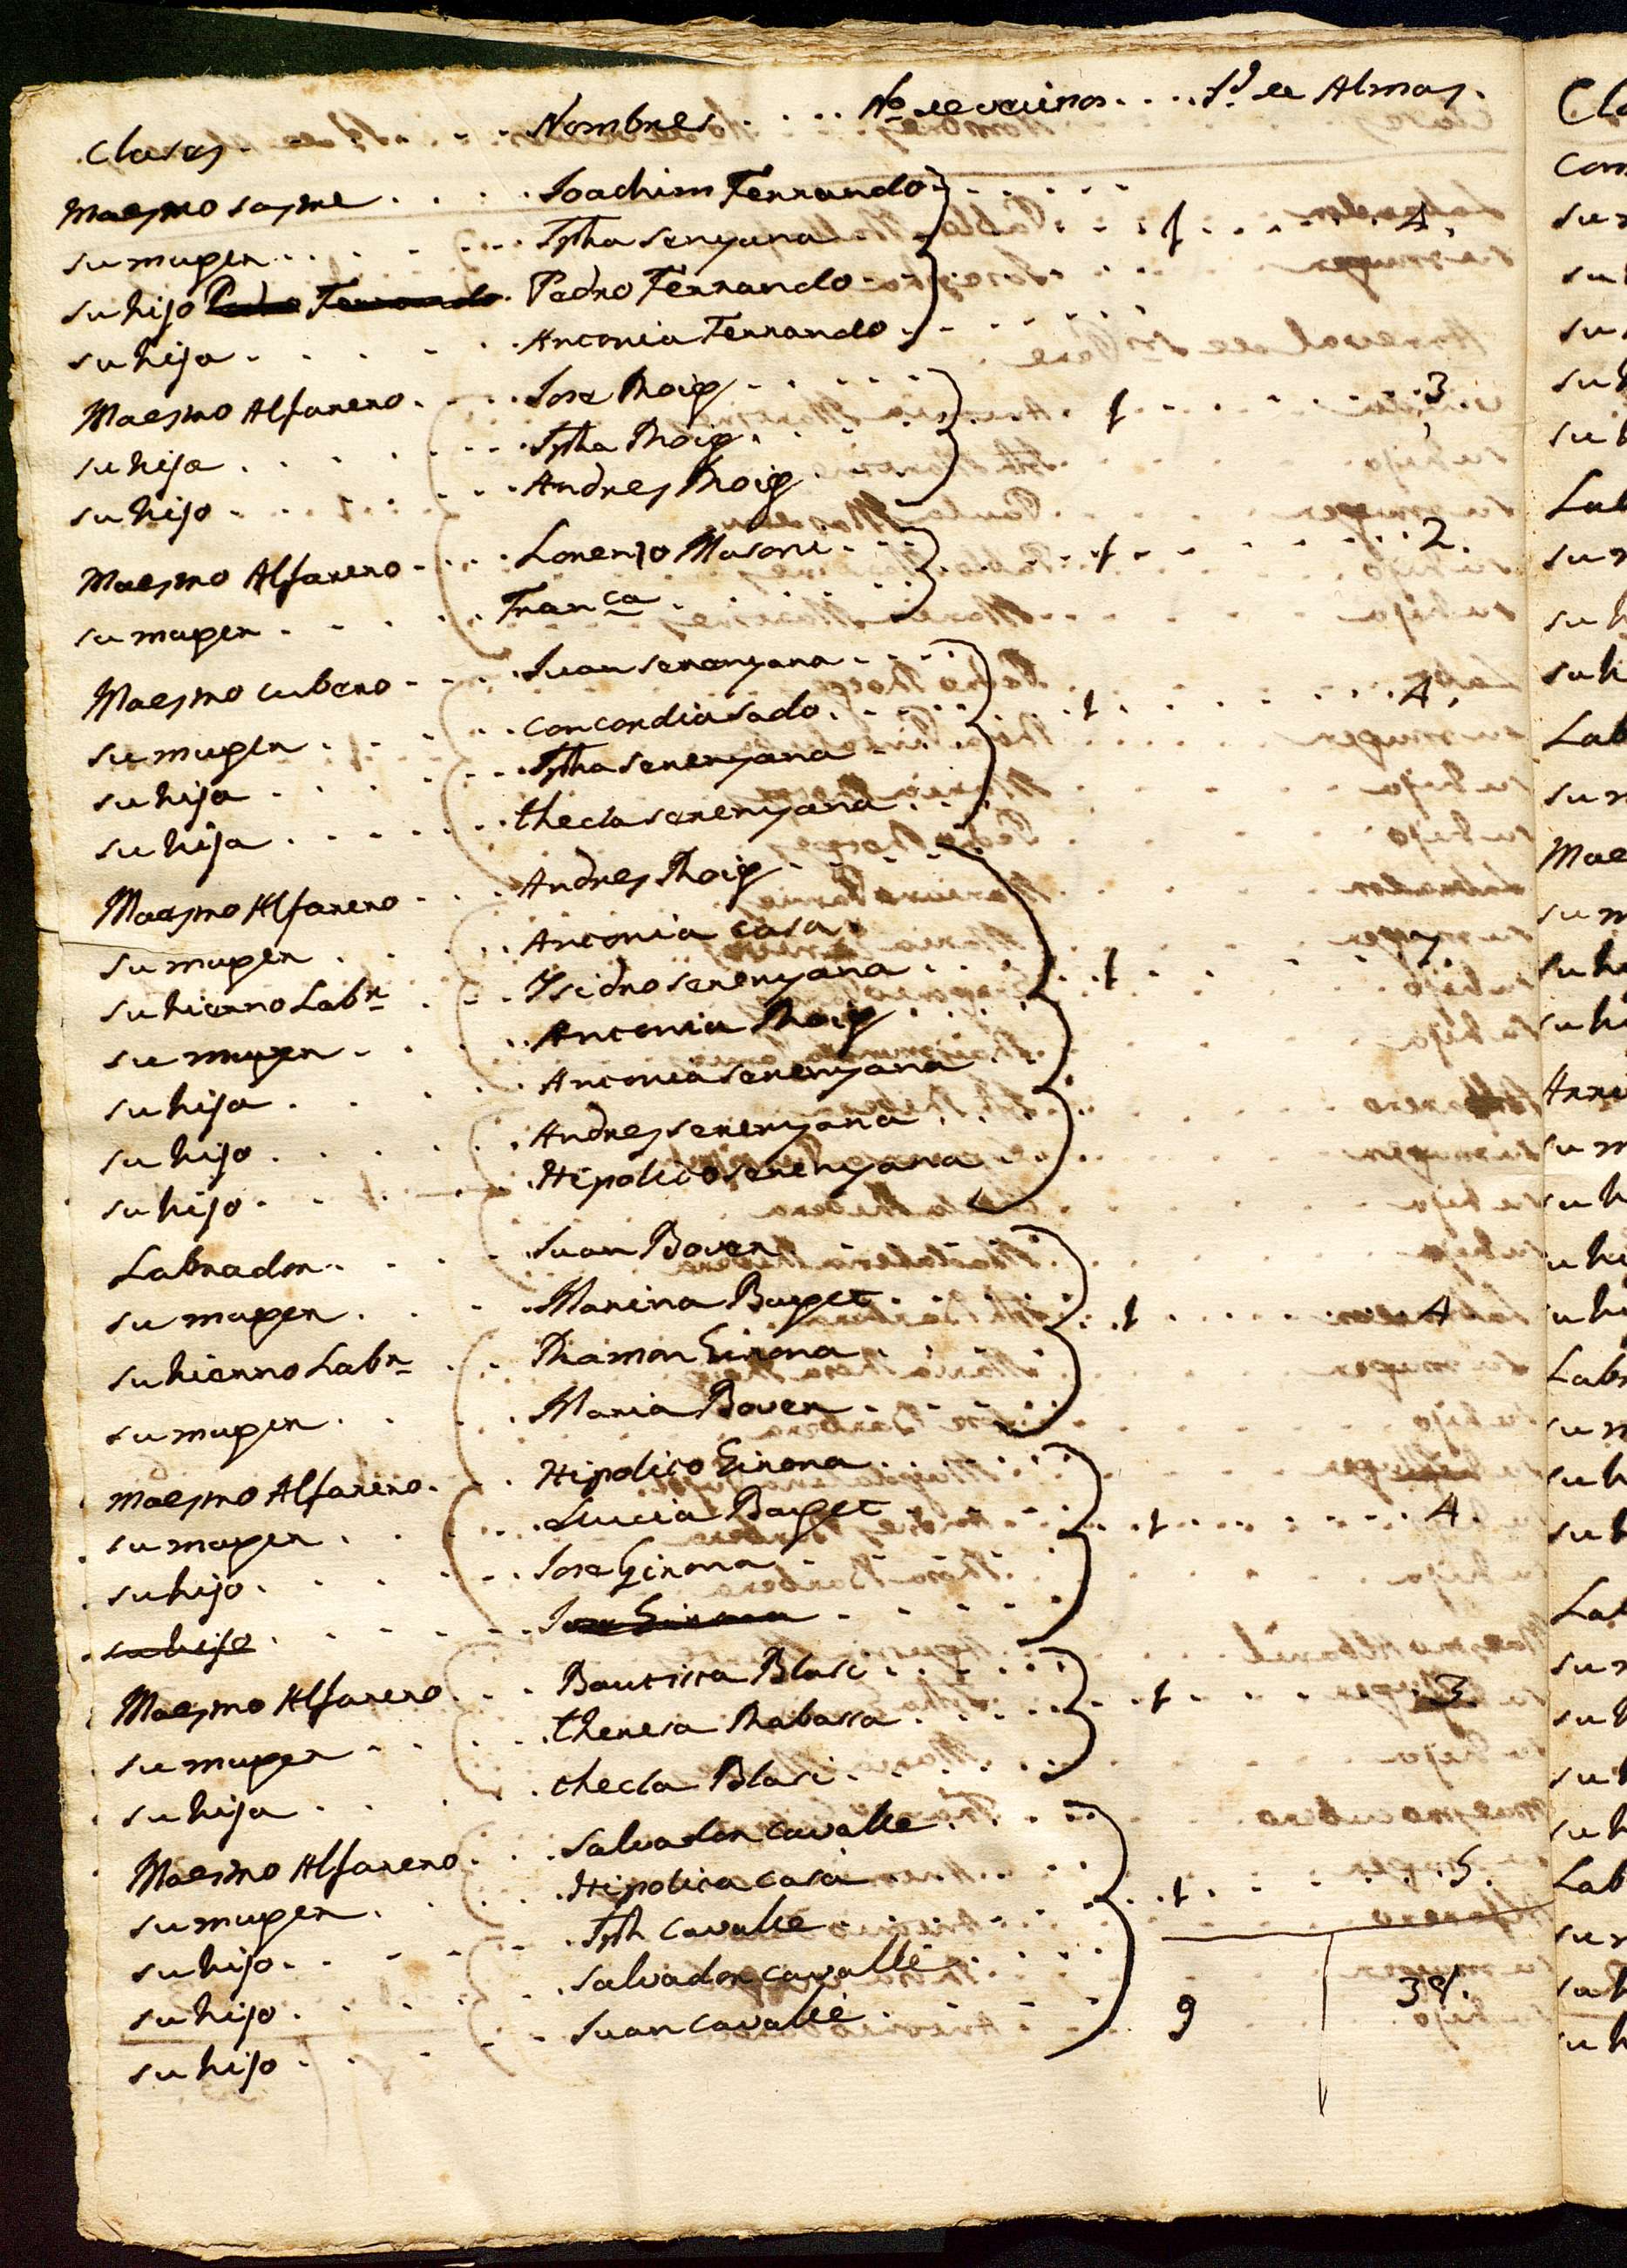 Clases Nombres No de vecinos Id de Almas
Maestro sastre Joachim Ferrando
su muger Ttha senyana 1 4
su hijo Pedro Ferrando Pedro Ferrando
su hija Antonia Ferrando
Maestro Alfarero Jose Roig 1 3
su hija Ttha Roig
su hijo Andres Roig
Maestro Alfarero Lorenzo Masone 1 2
su muger Franca
Maestro cubero Juan serenyana
su muger concordia sado 1 4
su hija Ttha serenyana
su hija thecla serenyana
Maestro Alfarero Andres Roig
su muger Antonia casa
su hierno Labr Isidro serenyana 1 7
su muger Antonia Roig
su hija Antonia serenyana
su hijo Andres serenyana
su hijo Hipolito serenyana
Labrador Juan Bover
su muger Marina Baget 1 4
su hierno Labr Ramon Girona
su muger Maria Bover
Maestro Alfarero Hipolito Girona
su muger Lucia Baget 1 4
su hijo Jose Girona
su hijo Jose Girona
Maestro Alfarero Bautista Blasi
su muger theresa Rabassa 1 3
su hija thecla Blasi
Maestro Alfarero salvador cavalle
su muger Hipolita casa 1 5
su hijo Tth cavalle
su hijo salvador cavallé
su hijo Juan cavallé 9
Cla
su
Lab
su
su h
su h
Lab
Mae
su h
Labr
su h
Lab
su h
Lab
su h